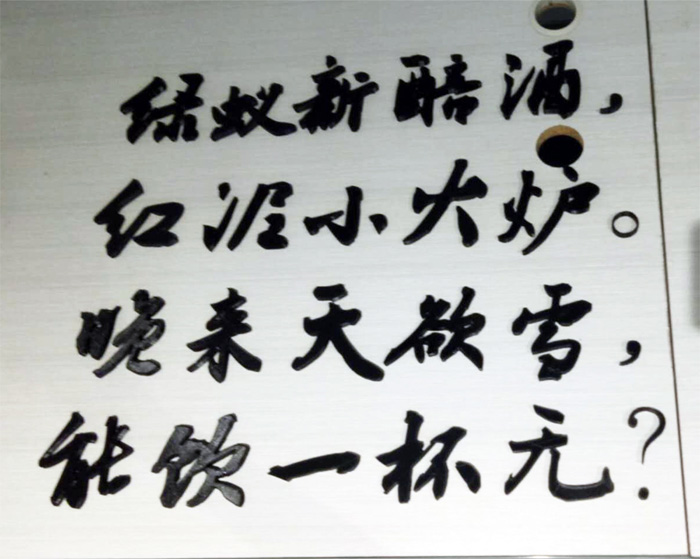 绿蚁新醅酒,
红泥小火炉。
晚来天欲雪,
能饮一杯无?